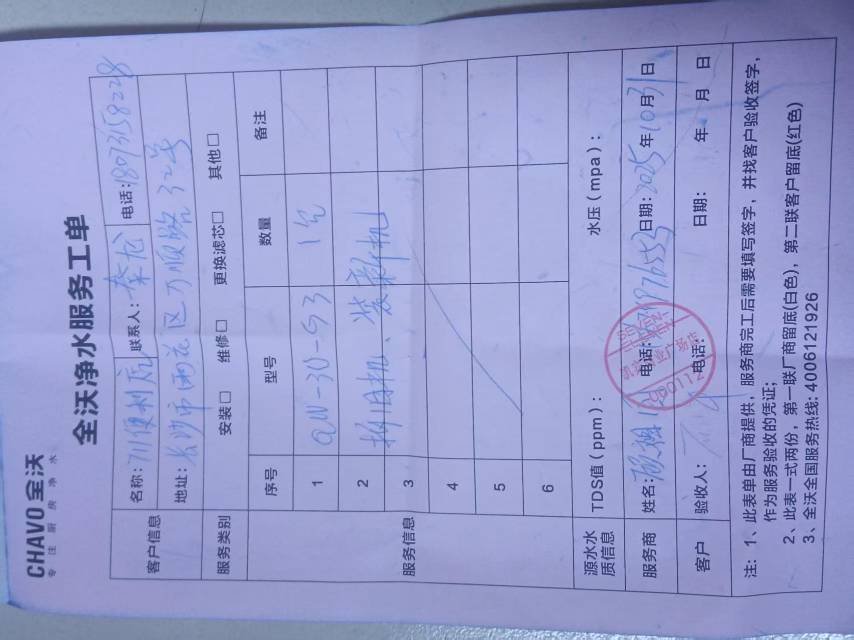 CHAVO全沃
专注厨房净水
全沃净水服务工单
客户信息
名称: 711便利店 联系人: 秦龙 电话: 18073158228
地址: 长沙市雨花区万顺路32号
服务类别 安装□ 维修□ 更换滤芯□ 其他□
服务信息
序号 型号 数量 备注
1 QW-3U-G3 1台
2 拆旧机、装新机
3
4
5
6
源水水质信息 TDS值(ppm): 水压(mpa):
服务商 姓名: 电话: 日期: 2025年10月31日
客户 验收人: 电话: 日期: 年 月 日
注: 1、此表单由厂商提供,服务商完工后需要填写签字,并找客户验收签字,
作为服务验收的凭证;
2、此表一式两份,第一联厂商留底(白色),第二联客户留底(红色)
3、全沃全国服务热线: 4006121926